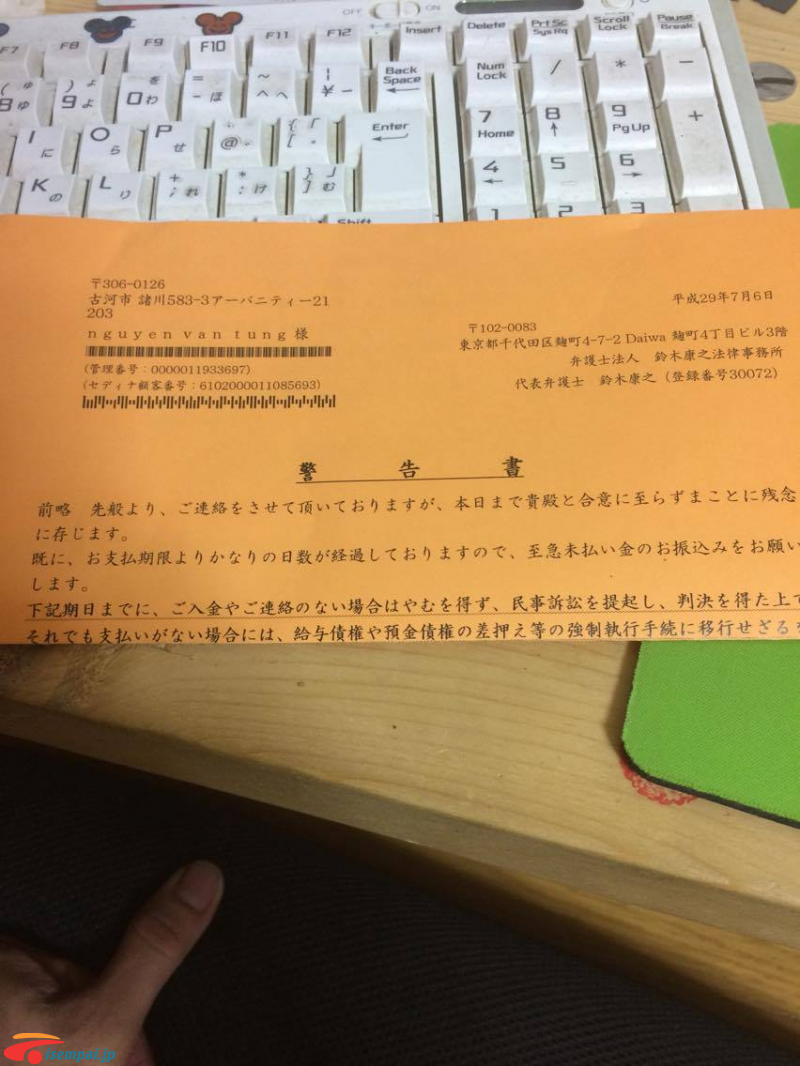 OFF ON
F7 F8 F9 F10 F11 F12 Insert Delete Prt Sc Sys Rq Scroll Lock Pause Break
8 ゆ ) よ 9 よ を 0 わ = - ほ ~ ^ へ | ¥ ー Back Space Num Lock / * -
I に O ら P せ @ 「 [ Enter 7 Home 8 9 PgUp +
K の L り + ; れ * : け } 」 ] む 4 5 6
Shift 1 2 3
〒306-0126
古河市 諸川583-3アーバニティー21
203
nguyen van tung 様
(管理番号:0000011933697)
(セディナ顧客番号:6102000011085693)
平成29年7月6日
〒102-0083
東京都千代田区麹町4-7-2 Daiwa 麹町4丁目ビル3階
弁護士法人 鈴木康之法律事務所
代表弁護士 鈴木康之(登録番号30072)
警告書
前略 先般より、ご連絡をさせて頂いておりますが、本日まで貴殿と合意に至らずまことに残念
に存じます。
既に、お支払期限よりかなりの日数が経過しておりますので、至急未払い金のお振込みをお願い
します。
下記期日までに、ご入金やご連絡のない場合はやむを得ず、民事訴訟を提起し、判決を得た上で
それでも支払いがない場合には、給与債権や預金債権の差押え等の強制執行手続に移行せざる
zempai.jp